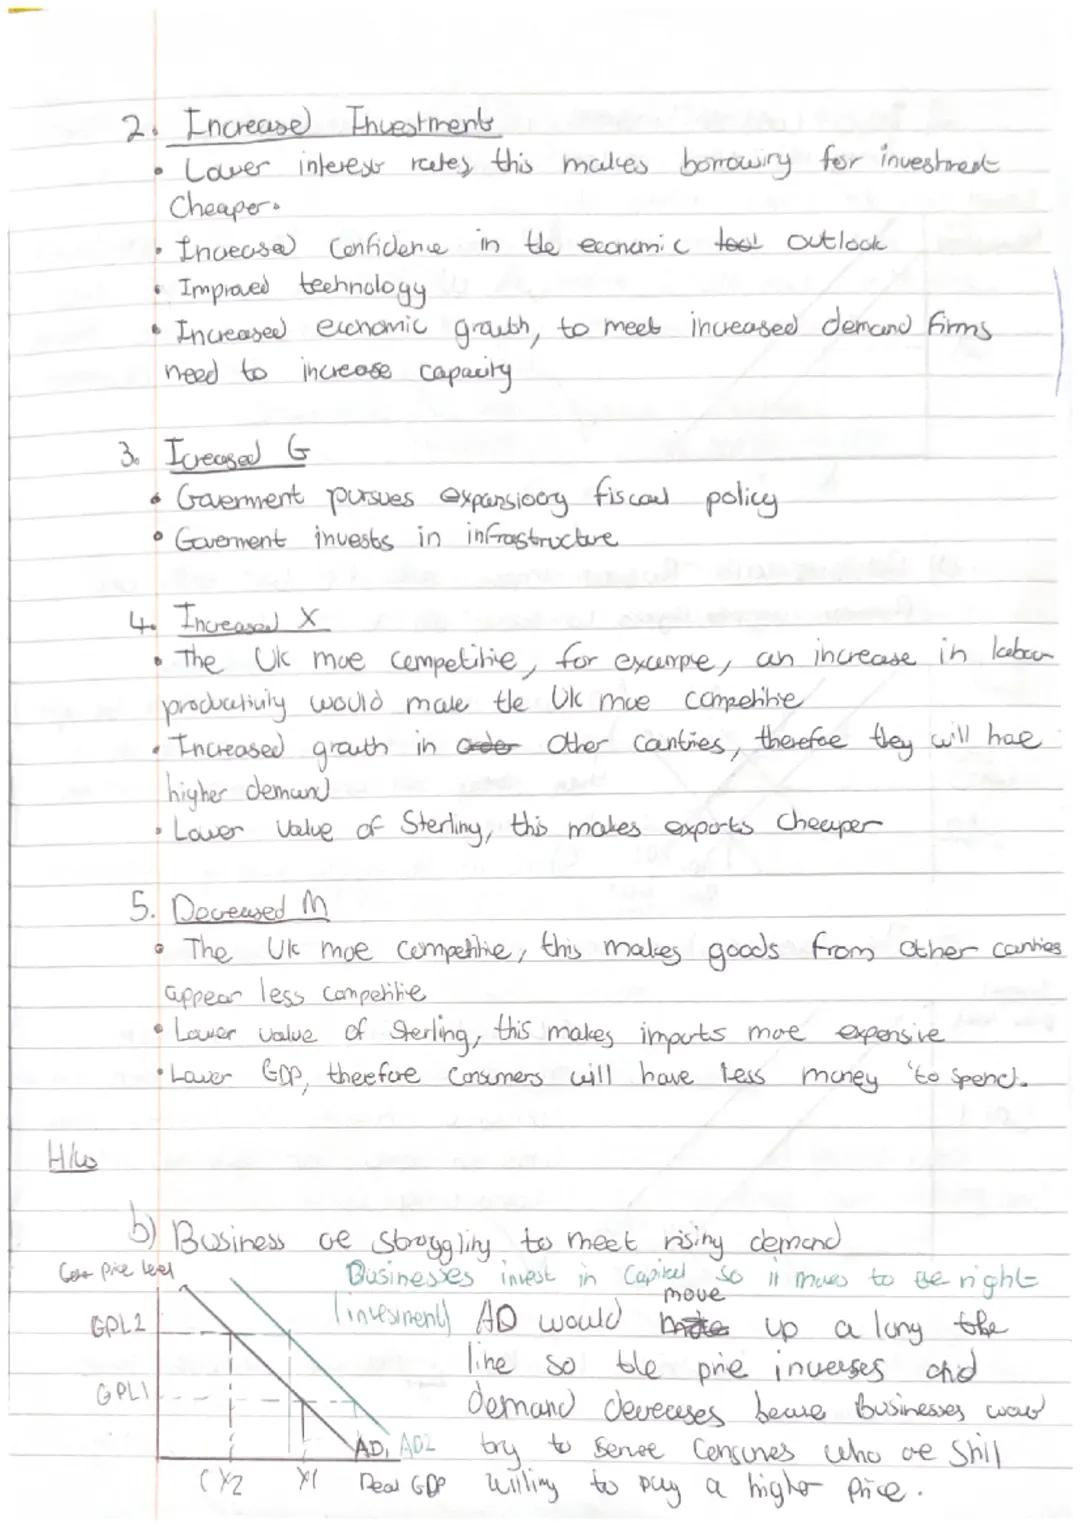 2. Increased Investments
• Lower interest rates, this makes borrowing for investment
Cheaper.
• Increased Confidence in the economic outlook
• Improved technology
• Increased economic growth, to meet increased demand firms
need to increase capacity
3. Icreased G
• Goverment pursues expansioory fiscal policy
• Goverment invests in infrastructure
4. Increased X
• The UK more competitive, for example, an increase in labour
productivity would make the UK more competitive
• Increased growth in order other countries, therefore they will have
higher demand
• Lower value of Sterling, this makes exports cheaper
5. Decreased M
• The UK more competitive, this makes goods from other countries
appear less competitive
• Lower value of Sterling, this makes imports more expensive
• Lower GDP, therefore consumers will have less money to spend.
H/w
b) Business are struggling to meet rising demand
price level
Businesses invest in Capital so it moves to the right
(investment) AD would move up a long the
GPL2
line so the price increases and
GPL1
demand decreases because businesses would
AD1 AD2
try to serve Consumers who are still
Y2 Y1 Real GDP
willing to pay a higher price.